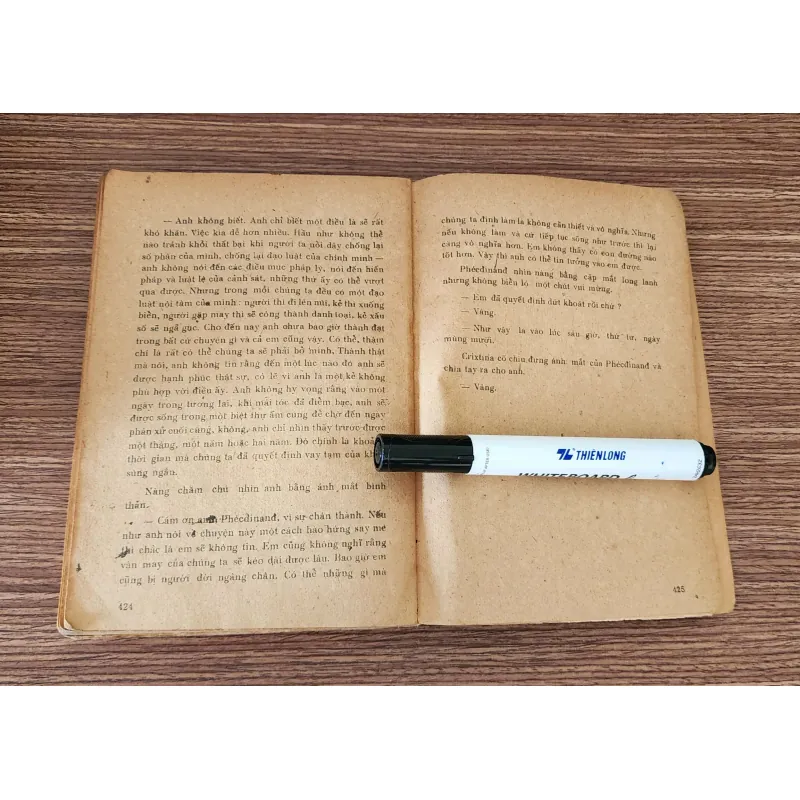 — Anh không biết. Anh chỉ biết một điều là sẽ rất
khó khăn. Việc kia dễ hơn nhiều. Hầu như không thể
nào tránh khỏi thất bại khi người ta nổi dậy chống lại
số phận của mình, chống lại đạo luật của chính mình —
anh không nói đến các điều mục pháp lý, nói đến hiến
pháp và luật lệ của cảnh sát, những thứ ấy có thể vượt
qua được. Nhưng trong mỗi chúng ta đều có một đạo
luật nội tâm của mình: người thì đi lên núi, kẻ thì xuống
biển, người gặp may thì sẽ công thành danh toại, kẻ xấu
số sẽ ngã gục. Cho đến nay anh chưa bao giờ thành đạt
trong bất cứ chuyện gì và cả em cũng vậy. Có thể, thậm
chí là rất có thể chúng ta sẽ phải bỏ mình. Thành thật
mà nói, anh không tin rằng đến một lúc nào đó anh sẽ
được hạnh phúc thật sự, có lẽ vì anh là một kẻ không
phù hợp với điều ấy. Anh không hy vọng rằng vào một
ngày trong tương lai, khi mái tóc đã điểm bạc, anh sẽ
được sống trong một biệt thự ấm cúng để chờ đến ngày
phán xử cuối cùng, không, anh chỉ nhìn thấy trước được
một tháng, một năm hoặc hai năm. Đó chính là khoả
thời gian mà chúng ta đã quyết định vay tạm của kh
súng ngắn.
Nàng chăm chú nhìn anh bằng ánh mắt bình
thản.
— Cám ơn anh Phécđinand, vì sự chân thành. Nếu
như anh nói về chuyện này một cách hào hứng say mê
thì chắc là em sẽ không tin. Em cũng không nghĩ rằng
vận may của chúng ta sẽ kéo dài được lâu. Bao giờ em
cũng bị người đời ngáng chân. Có thể những gì mà
424
chúng ta định làm là không cần thiết và vô nghĩa. Nhưng
nếu không làm và cứ tiếp tục sống như trước thì lại
càng vô nghĩa hơn. Em không thấy có con đường nào
tốt hơn. Vậy thì anh có thể tin tưởng vào em được.
Phécđinand nhìn nàng bằng cặp mắt long lanh
nhưng không biểu lộ một chút vui mừng.
— Em đã quyết định dứt khoát rồi chứ?
— Vâng.
— Như vậy là vào lúc sáu giờ, thứ tư, ngày
mùng mười.
Crixtina cố chịu đựng ánh mắt của Phécđinand và
chìa tay ra cho anh.
— Vâng.
TL THIÊN LONG
WHITEBOARD
425